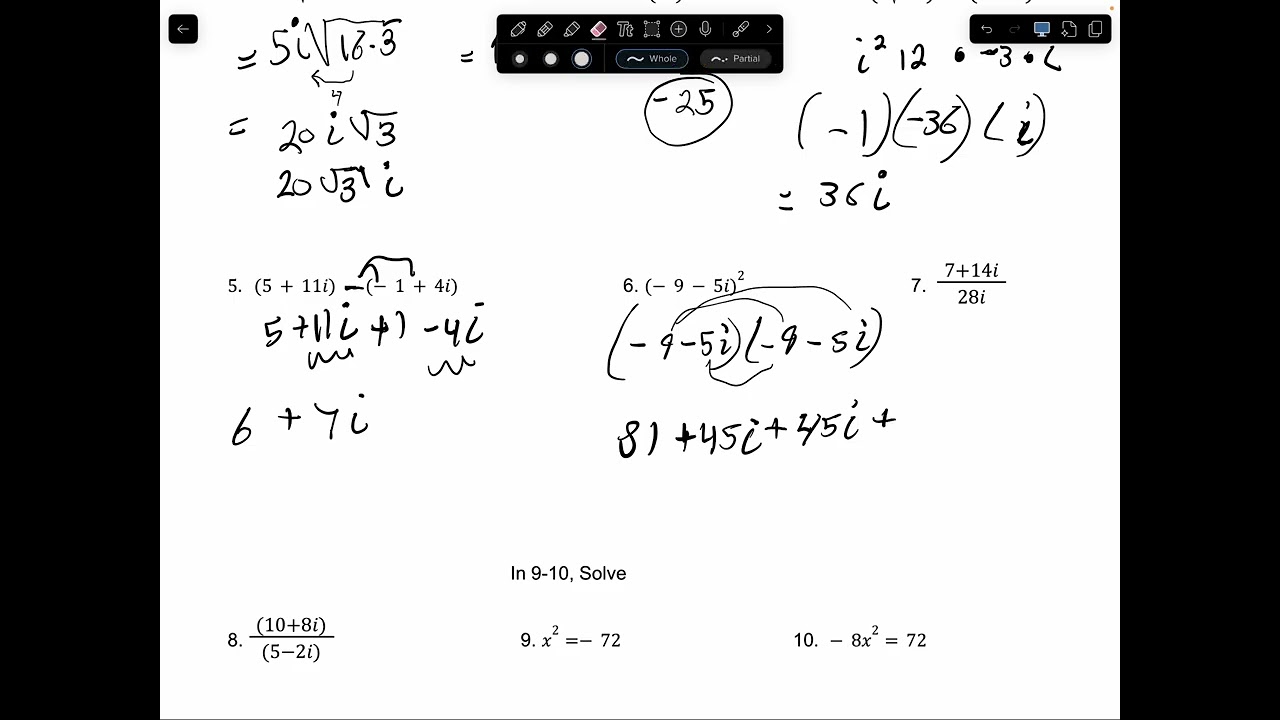 = 5i√16·3
=
i² 12 · -3 · i
Whole
Partial
4
-25
(-1)(-36)(i)
= 20i√3
20√3 i
= 36i
5. (5 + 11i) - (- 1 + 4i)
6. (- 9 - 5i)²
7. 7+14i
28i
5 + 11i + 1 - 4i
(-9-5i)(-9-5i)
6 + 7i
81 + 45i + 45i +
In 9-10, Solve
8. (10+8i)
(5-2i)
9. x² =- 72
10. - 8x² = 72